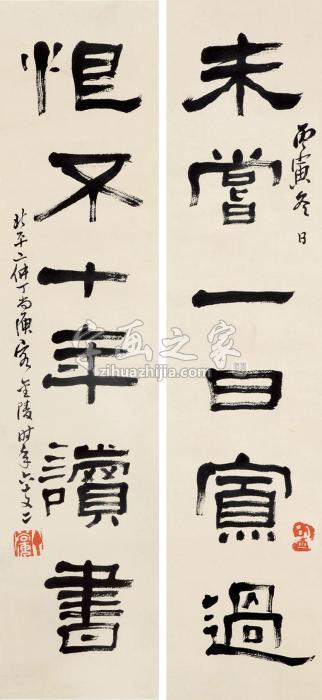 丙寅冬日
未嘗一日寡過
恨不十年讀書
北平二仲丁尚庚客金陵时年六十又二
字画之家
zihuazhijia.com